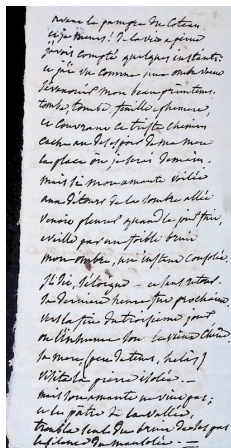 avant la pampre du coteau
et je meurs! de la vie à peine
j'avois compté quelques instants
et j'ai vu comme une ombre vaine
s'évanouir mon beau printems.
tombe, tombe feuille éphémère,
et couvrant ce triste chemin
cache au désespoir de ma mere
la place où je serai demain.
mais si mon amante voilée
aux détours de la sombre allée
venoit pleurer quand le jour fuit,
éveille par un foible bruit
mon ombre, un instant consolée.
Il dit, s'éloigne — et sans retour.
Sa derniere heure fut prochaine,
vers la fin du troisieme jour
on l'inhuma sous le vieux chêne,
sa mere, (peu de tems, helas)
visita la pierre isolée —
mais son amante ne vint pas;
et le pâtre de la vallée,
troubla seul du bruit de ses pas
le silence du mausolée —